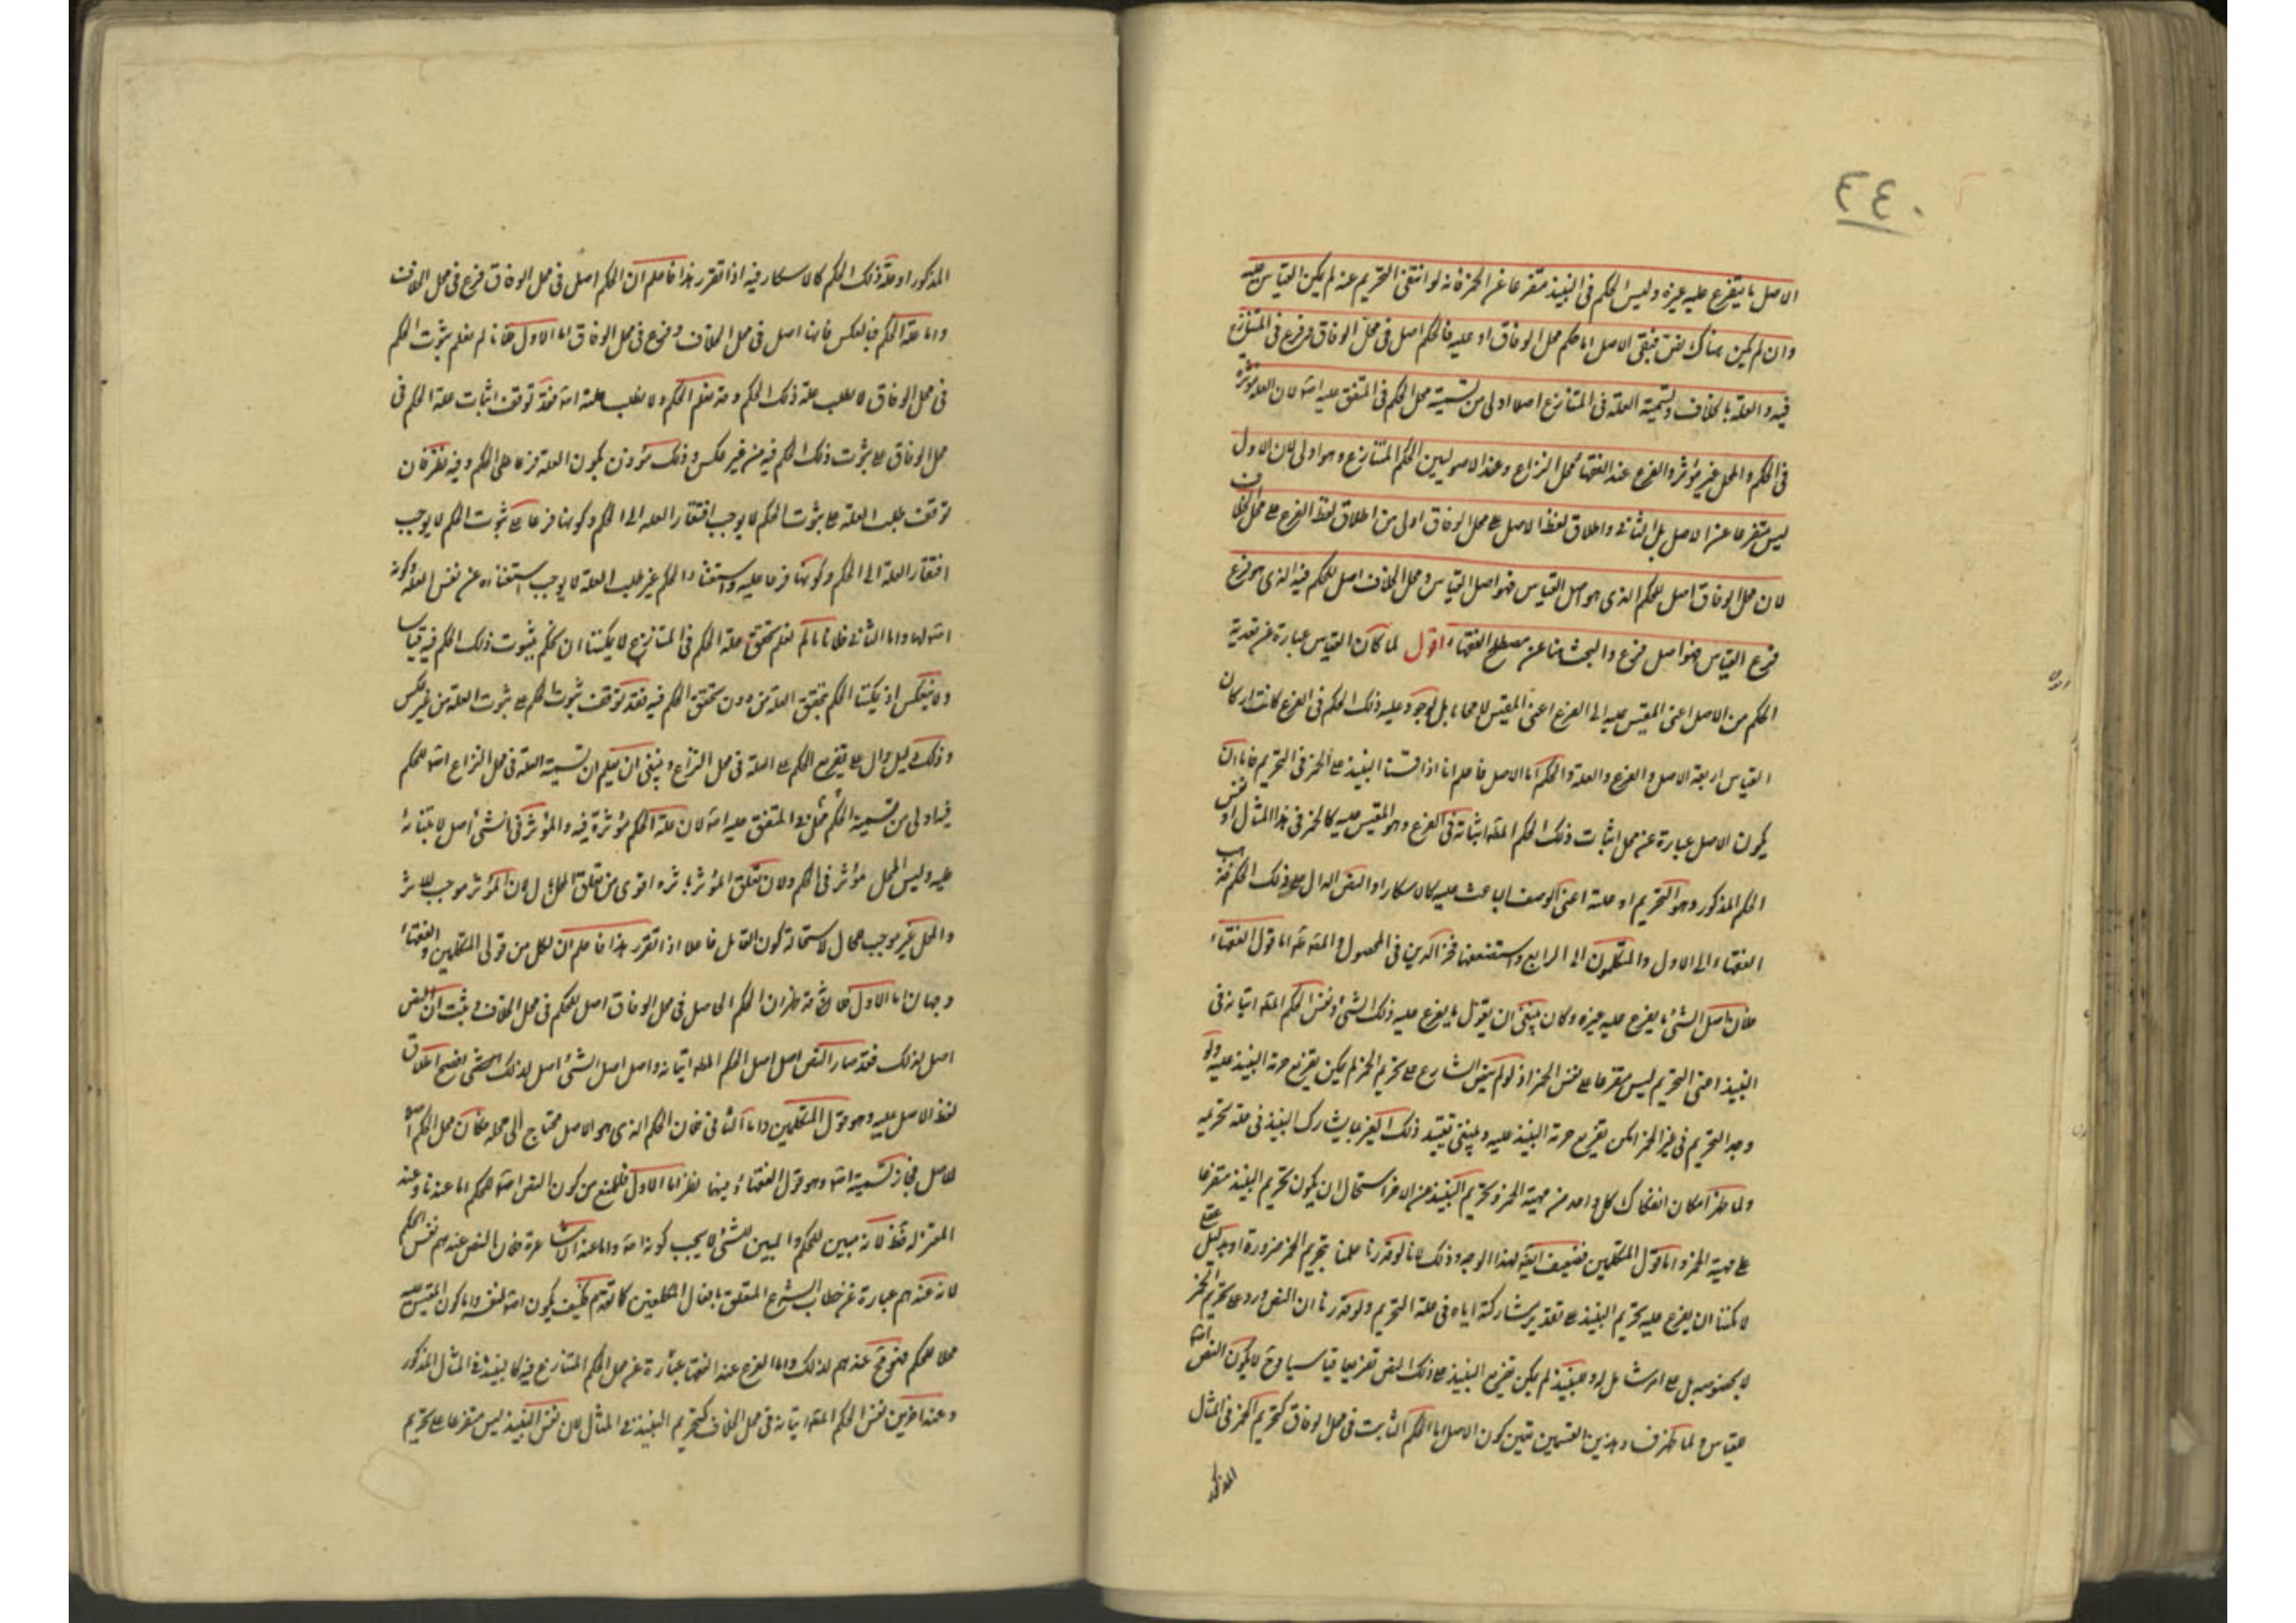 ٤٤٠
الاصل ما يتفرع عليه غيره وليس الحكم فى النبيذ متفرعا عن الخمر فانه لو انتفى التحريم عنه لم يكن القياس عليه
وان لم يكن هناك نص فبقى الاصل اما حكم محل الوفاق او علته فالحكم اصل فى محل الوفاق فرع فى المتنازع
فيه والعلة بالخلاف وتسمية العلة فى المتنازع اصلا اولى من تسمية محل الحكم فى المتفق عليه اصلا لان العلة مؤثرة
فى الحكم والمحل غير مؤثر والفرع عند الفقهاء محل النزاع وعند الاصوليين الحكم المتنازع وهو اولى لان الاول
ليس متفرعا عن الاصل بل الثانى واطلاق لفظ الاصل على محل الوفاق اولى من اطلاق لفظ الفرع على محل الخلاف
لان محل الوفاق اصل للحكم الذى هو اصل القياس فهو اصل اصل القياس ومحل الخلاف اصل للحكم فيه الذى هو فرع
فرع القياس فهو اصل فرع والبحث هنا عن مصطلح الفقهاء اقول لما كان القياس عبارة عن تعدية
الحكم من الاصل اعنى المقيس عليه الى الفرع اعنى المقيس لا مجانا بل لوجود علية ذلك الحكم فى الفرع كانت اركان
القياس اربعة الاصل والفرع والعلة والحكم اما الاصل فاعلم انا اذا قسنا النبيذ على الخمر فى التحريم فاما ان
يكون الاصل عبارة عن محل اثبات ذلك الحكم المط اثباته فى الفرع وهو المقيس عليه كالخمر فى هذا المثال او نفس
الحكم المذكور وهو التحريم او علته اعنى الوصف الباعث عليه كالاسكار او النص الدال على ذلك الحكم فذهب
الفقهاء الى الاول والمتكلمون الى الرابع واستضعفها فخر الدين فى المحصول والمص اما قول الفقهاء
فلان اصل الشئ ما يفرع عليه غيره وكان ينبغى ان يقول ما يفرع عليه ذلك الشئ ونفس الحكم المط اثباته فى
النبيذ اعنى التحريم ليس متفرعا على نفس الخمر اذ لو لم ينص الشارع على تحريم الخمر لم يكن يتفرع حرمة النبيذ عليه ولو
وجد التحريم فى غير الخمر امكن تفرع حرمة النبيذ عليه وينبغى تقييد ذلك الغير بما يشارك النبيذ فى علة تحريمه
ولما ظهر امكان انفكاك كل واحد من مهية الخمر وتحريم النبيذ عن الاخر استحال ان يكون تحريم النبيذ متفرعا
على مهية الخمر واما قول المتكلمين فضعيف ايضا لهذا الوجه وذلك لانا لو قدرنا علمنا بتحريم الخمر ضرورة او بدليل عقلى
لامكننا ان يفرع عليه تحريم النبيذ على تقدير مشاركته اياه فى علة التحريم ولو قدرنا ان النص ورد على تحريم الخمر
لا بخصوصه بل على امر شامل له وللنبيذ لم يكن تفريع النبيذ على ذلك النص تفريعا قياسيا وح لا يكون النص اصلا
للقياس ولما ظهر ضعف هذين القسمين تعين كون الاصل اما الحكم الثابت فى محل الوفاق كتحريم الخمر فى المثال
المذكور
المذكور او علة ذلك الحكم كالاسكار فيه اذا تقرر هذا فاعلم ان الحكم اصل فى محل الوفاق فرع فى محل الخلاف
واما علة الحكم فبالعكس فانها اصل فى محل الخلاف وفرع فى محل الوفاق اما الاول فلانا ما لم نعلم ثبوت الحكم
فى محل الوفاق لا نطلب علة ذلك الحكم وقد نعلم الحكم ولا نطلب علته اصلا فقد توقف اثبات علة الحكم فى
محل الوفاق على ثبوت ذلك الحكم فيه من غير عكس وذلك موذن بكون العلة فرعا على الحكم وفيه نظر فان
توقف طلب العلة على ثبوت الحكم لا يوجب افتقار العلة الى الحكم وكونها فرعا على ثبوت الحكم لا يوجب
افتقار العلة الى الحكم وكونها فرعا عليه واستغناء الحكم عن طلب العلة لا يوجب استغناءه عن نفس العلة وكونه
اصلا لها واما الثانى فلانا ما لم نعلم تحقق علة الحكم فى المتنازع لا يمكننا ان نحكم بثبوت ذلك الحكم فيه قياسا
ولا ينعكس اذ يمكننا الحكم بتحقق العلة من دون تحقق الحكم فيه فقد توقف ثبوت الحكم على ثبوت العلة من غير عكس
وذلك دليل دال على تفرع الحكم على العلة فى محل النزاع وينبغى ان يعلم ان تسمية العلة فى محل النزاع اصلا للحكم
فيه اولى من تسمية الحكم فى المتفق عليه اصلا لان علة الحكم مؤثرة فيه والمؤثر فى الشئ اصل لابتنائه
عليه وليس المحل مؤثر فى الحكم ولان تعلق المؤثر باثره اقوى من تعلق المحل بالحال لان المؤثر موجب للاثر
والمحل غير موجب للحال لاستحالة كون القابل فاعلا اذا تقرر هذا فاعلم ان لكل من قولى المتكلمين والفقهاء
وجها اما الاول فلانه قد ظهر ان الحكم الحاصل فى محل الوفاق اصل للحكم فى محل الخلاف وثبت ان النص
اصل لذلك فقد صار النص اصل اصل الحكم المط اثباته واصل اصل الشئ اصل لذلك الشئ فصح اطلاق
لفظ الاصل عليه وهو قول المتكلمين واما الثانى فلان الحكم الذى هو الاصل محتاج الى محله فكان محل الحكم اصلا
للاصل فجاز تسميته اصلا وهو قول الفقهاء وفيهما نظر اما الاول فللمنع من كون النص اصلا للحكم اما عندنا وعند
المعتزلة فظ لانه مبين للحكم والمبين للشئ لا يجب كونه اصلا واما عند الاشاعرة فلان النص عندهم نفس الحكم
لانه عندهم عبارة عن خطاب الشرع المتعلق بافعال المكلفين كما تقدم فكيف يكون اصلا لنفسه واما كون المقيس عليه
محلا للحكم فممنوع عندهم لذلك واما الفرع عند الفقهاء عبارة عن محل الحكم المتنازع فيه كالنبيذ فى المثال المذكور
وعند اخرين نفس الحكم المط اثباته فى محل الخلاف كتحريم النبيذ فى المثال لان نفس النبيذ ليس متفرعا على تحريم